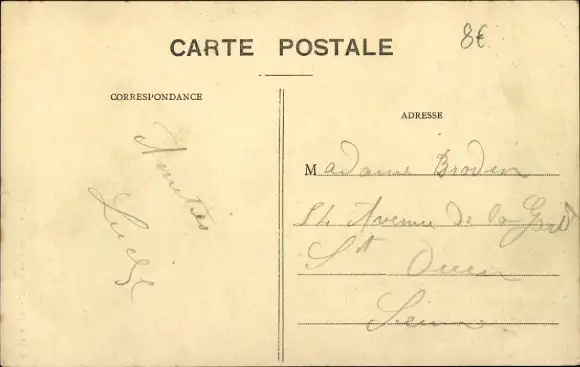 CARTE POSTALE
8€
CORRESPONDANCE
ADRESSE
Amitiés
Madame Brodin
54 Avenue de la Gare
St Ouen
Seine